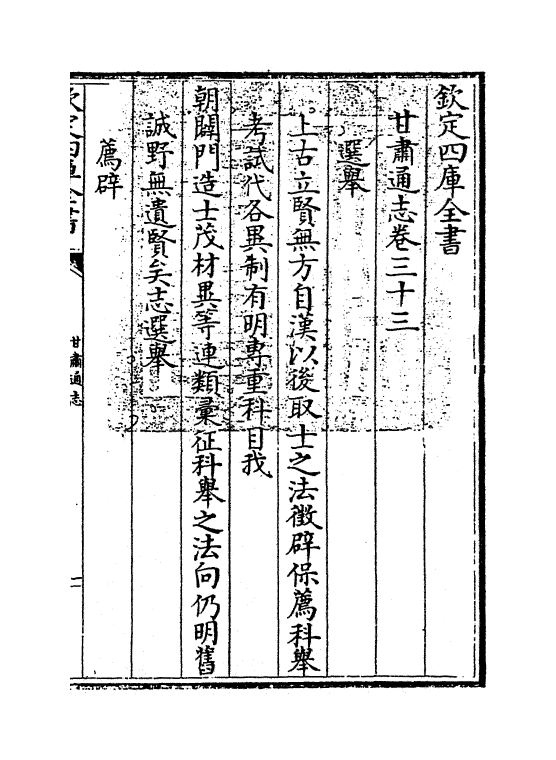 欽定四庫全書
甘肅通志卷三十三
選舉
上古立賢無方自漢以後取士之法徵辟保薦科舉
考試代各異制有明專重科目我
朝闢門造士茂材異等連類彚征科舉之法向仍明舊
誠野無遺賢矣志選舉
薦辟
欽定四庫全書
甘肅通志
一